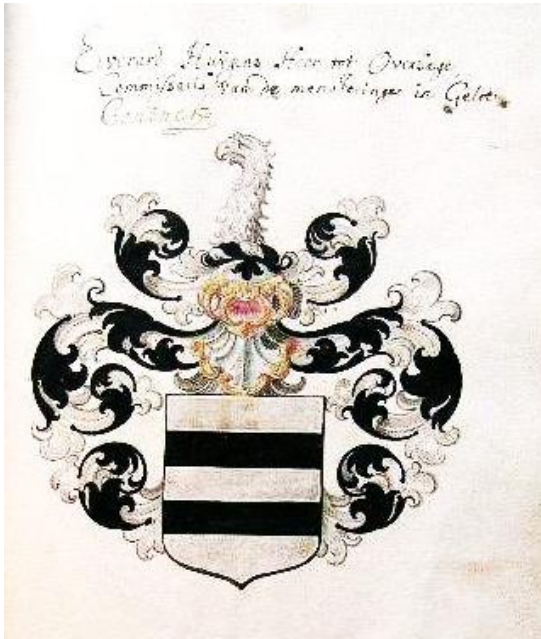 Everard Huijgens Heer tot Overhage
Commissaris van de monsteringe in Gelder